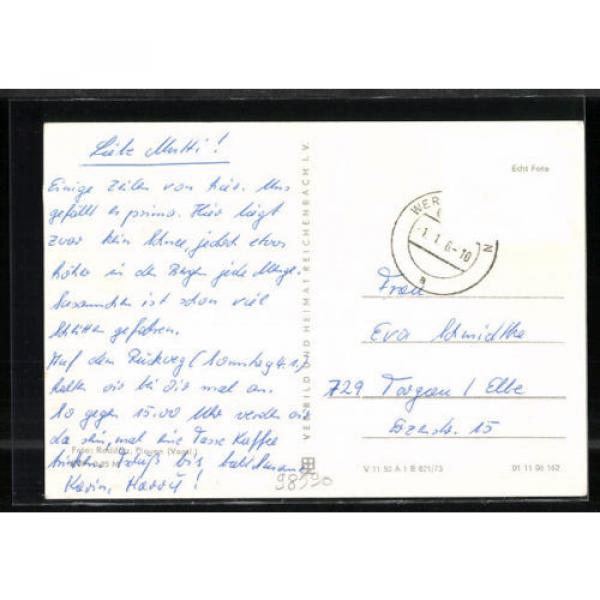 Liebe Mutti!
Einige Zeilen von hier. Uns
gefällt es prima. Hier liegt
zwar kein Schnee, jedoch etwas
höher in den Bergen jede Menge.
ist schon viel
Schlitten gefahren.
Auf dem Rückweg (Sonntag 4.1.)
halten wir bei Dir mal an.
So gegen 15.00 Uhr werden wir
da sein, mal eine Tasse Kaffee
trinken. Gruß bis bald
Karin,
Foto: Plauen (Vogtl.)
VEB BILD UND HEIMAT REICHENBACH I. V.
Echt Foto
WER
-1.1.6-10
N
a
Frau
Eva Schmidtke
729 Torgau / Elbe
15
V 11 50 A 1 B 821/73
01 11 06 162
98590